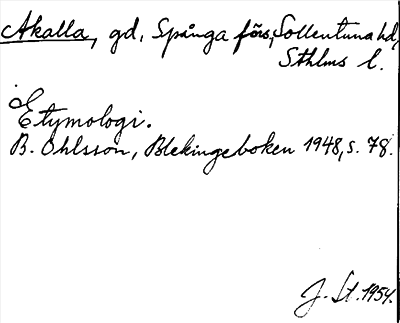 Akalla, gd, Spånga förs, Sollentuna hd,
Sthlms l.
Etymologi.
B. Ohlsson, Blekingeboken 1948, s. 78.
J. St. 1954.